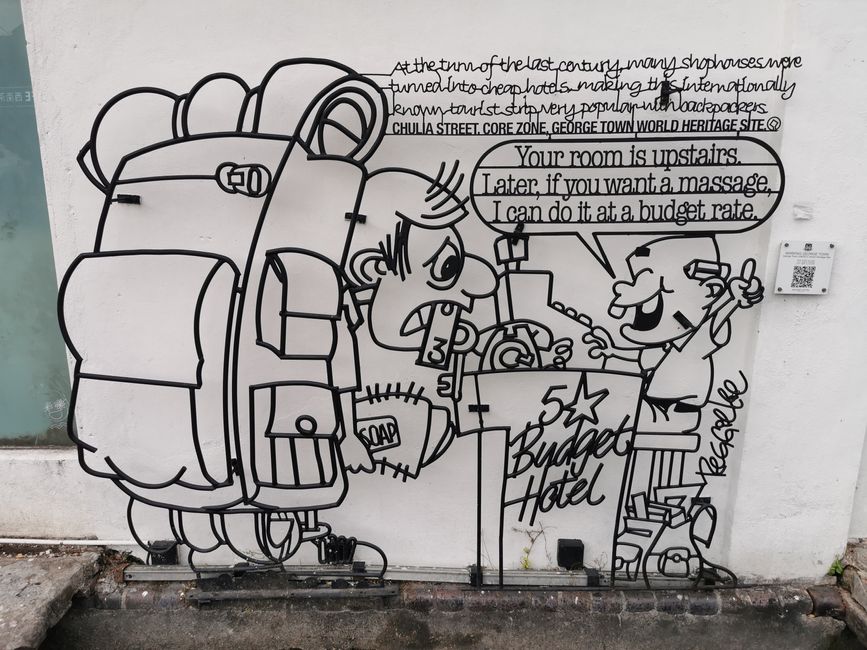 At the turn of the last century, many shophouses were
turned into cheap hotels making this internationally
known tourist strip very popular with backpackers.
CHULIA STREET. CORE ZONE, GEORGE TOWN WORLD HERITAGE SITE.
Your room is upstairs.
Later, if you want a massage,
I can do it at a budget rate.
3
SOAP
5
Budget
Hotel
reggie lee